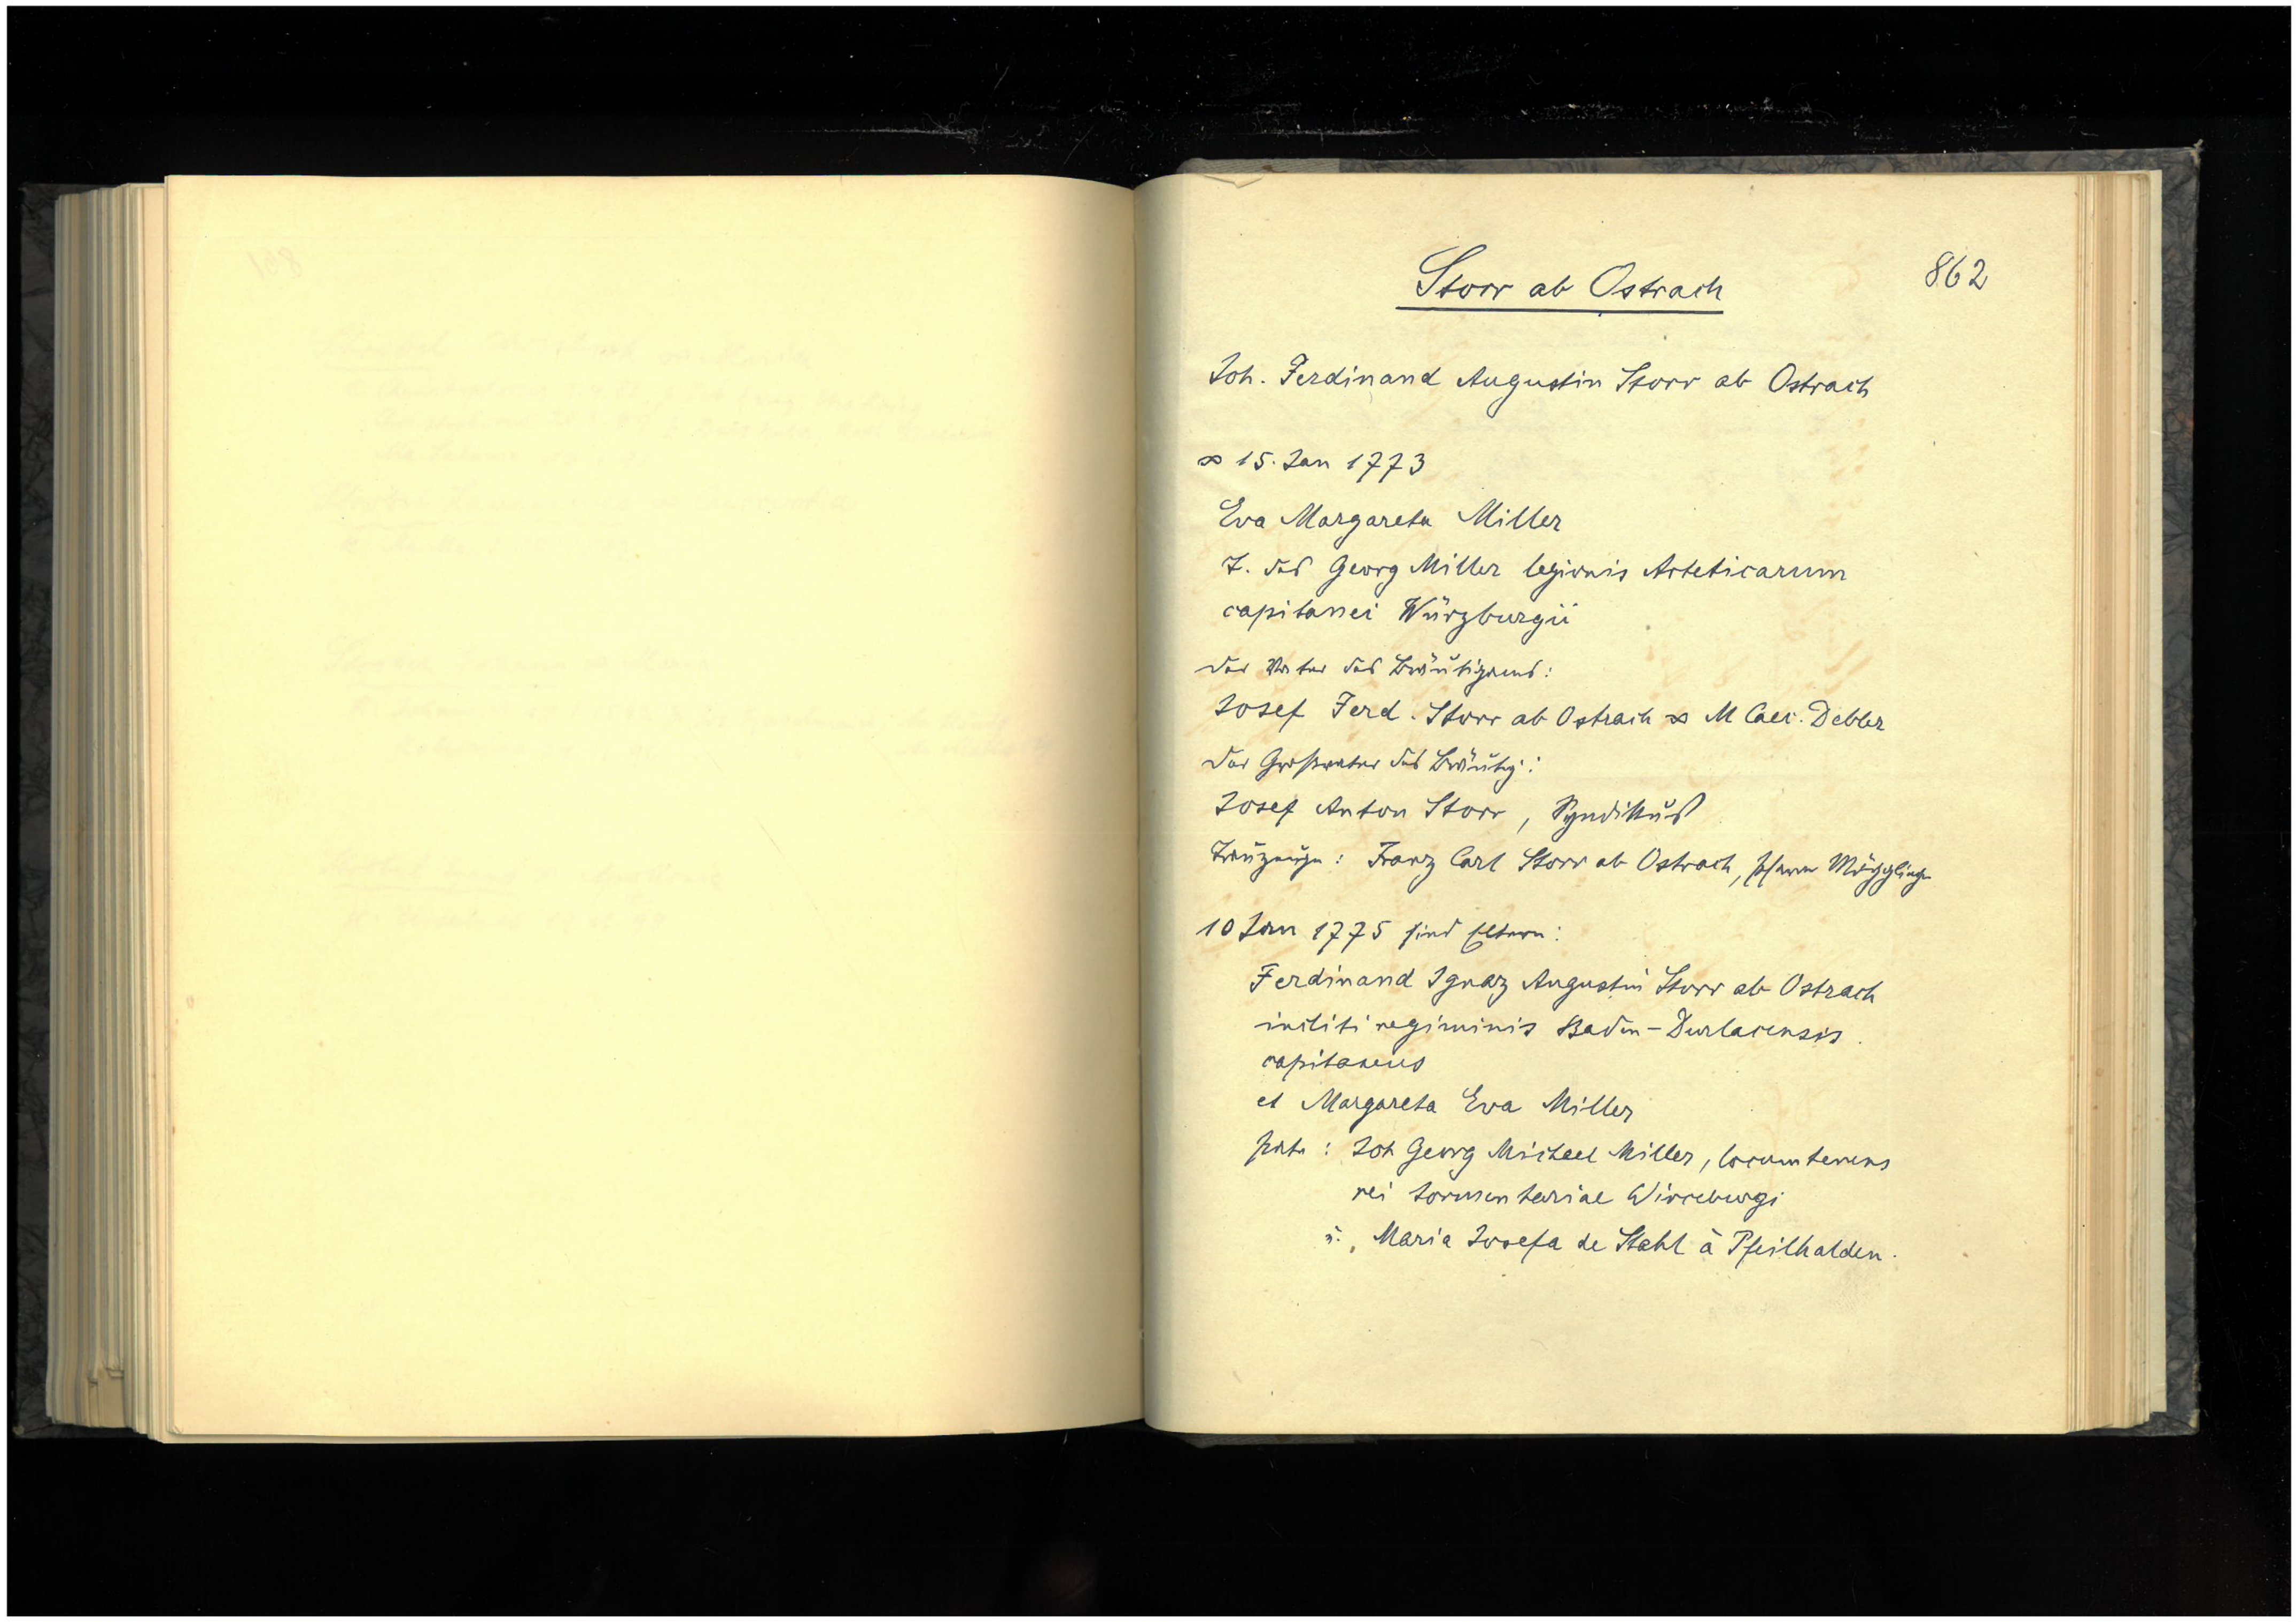 Storr ab Ostrach
862
Joh. Ferdinand Augustin Storr ab Ostrach
∞ 15. Jan 1773
Eva Margareta Miller
T. des Georg Miller legionis Arteticarum
capitanei Würzburgii
der Vater des Bräutigams:
Josef Ferd. Storr ab Ostrach ∞ M Caec. Debler
der Großvater des Bräutig.:
Josef Anton Storr, Syndikus
Trauzeuge: Franz Carl Storr ab Ostrach, Pfarrer Mögglingen
10 Jan 1775 sind Eltern:
Ferdinand Ignaz Augustin Storr ab Ostrach
incliti regiminis Baden-Durlacensis
capitaneus
et Margareta Eva Miller
Pate: Joh Georg Michael Miller, locumtenens
rei tormentariae Wirceburgi
u. Maria Josefa de Stahl à Pfeilhalden.